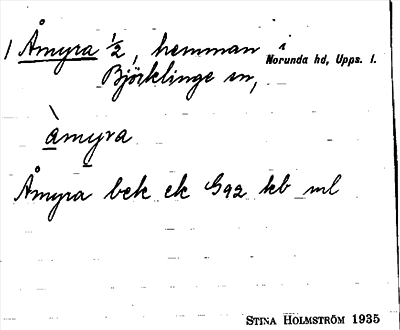 1 Åmyra ½, hemman i Norunda hd, Upps. l.
Björklinge sn,
àmyra
Åmyra bek ek G92 kb ml
STINA HOLMSTRÖM 1935